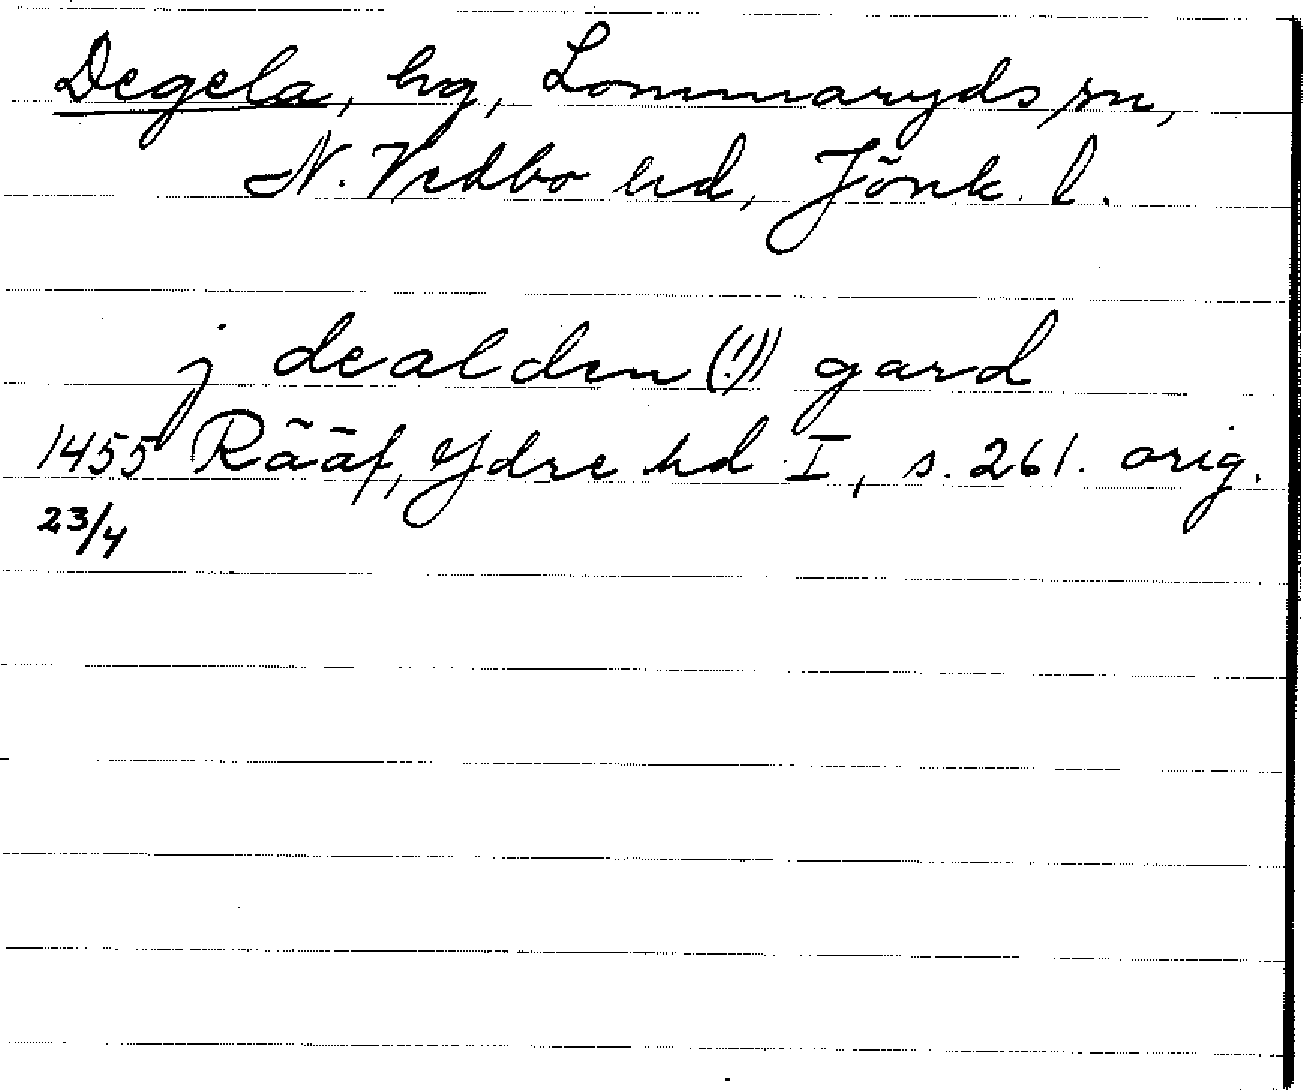 Degela, hg, Lommaryds sn,
N. Vedbo hd, Jönk. l.
j dealden (!)) gard
1455 Rääf, Ydre hd I, s. 261. orig.
23/4